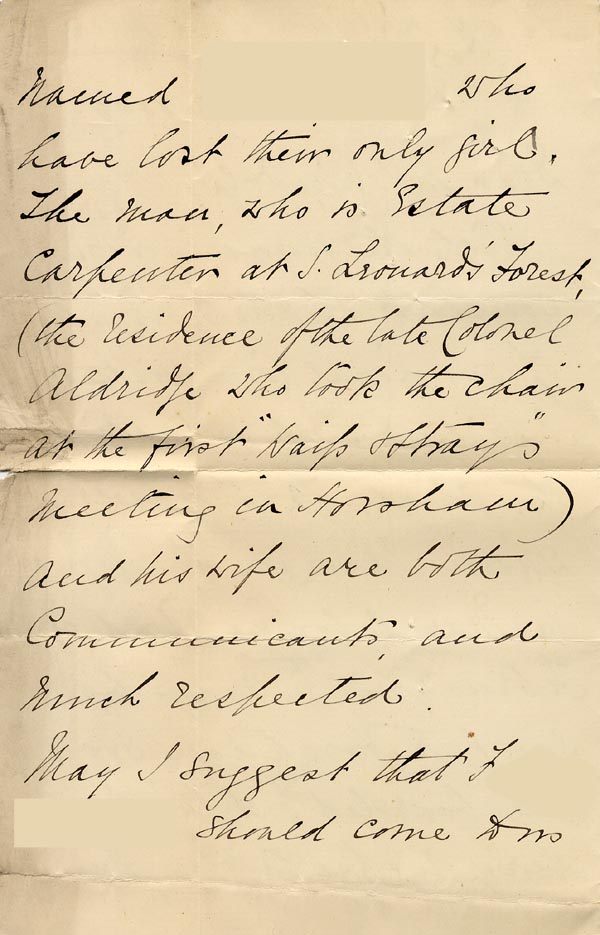 Named who
have lost their only girl.
The man, who is Estate
Carpenter at S. Leonard's Forest,
(the residence of the late Colonel
Aldridge who took the chair
at the first "Waifs & Strays"
Meeting in Horsham)
and his wife are both
Communicants, and
much respected.
May I suggest that F
should come to us